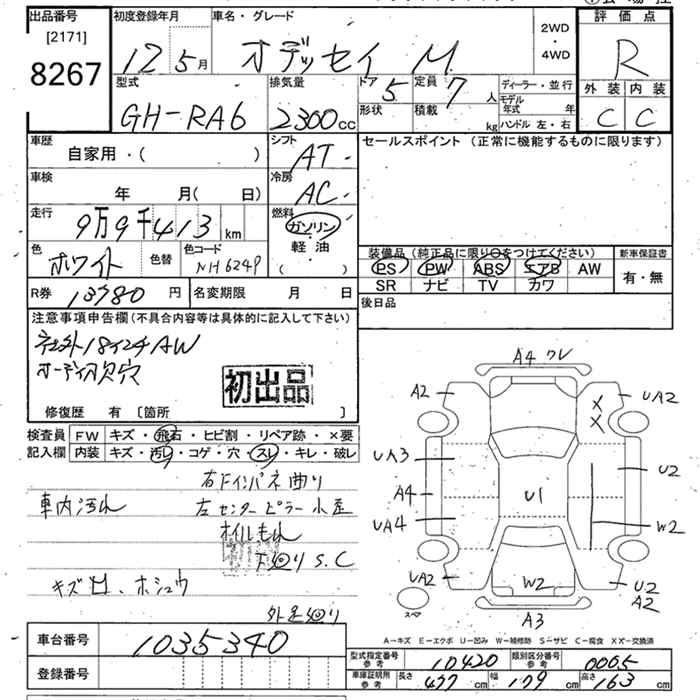 出品番号 初度登録年月 車名・グレード 2WD・4WD 評価点
[2171]
8267 12 5月 オデッセイ M R
型式 排気量 ドア 5 定員 7人 ディーラー・並行 外装 内装
GH-RA6 2300cc 形状 積載 kg モデル年式 年 ハンドル 左・右 C C
車歴 シフト セールスポイント (正常に機能するものに限ります)
自家用・( ) AT
車検 冷房
年 月( 日) AC
走行 9万9千413km 燃料 ガソリン 軽油 ( )
色 ホワイト 色替 色コード NH624P
装備品 (純正品に限り○をつけてください) 新車保証書
PS PW ABS エアB AW 有・無
SR ナビ TV カワ
R券 13780円 名変期限 月 日 後日品
注意事項申告欄 (不具合内容等は具体的に記入して下さい)
18インチAW
オーディオ欠穴
初出品
修復歴 有 [箇所 ]
検査員 FW キズ・飛石・ヒビ割・リペア跡・×要
記入欄 内装 キズ・汚レ・コゲ・穴・スレ・キレ・破レ
右Fインパネ曲り
車内汚れ 左センターピラー小歪
オイルもれ
下廻りS.C
キズ凹、ホシュウ
外足廻り
A4 ワレ
A2 UA2
X
X
UA3 U2
A4 U1
UA4 W2
UA2 W2 U2
A2
スペア A3
A-キズ E-エクボ U-凹み W-補修跡 S-サビ C-腐食 XX-交換済
車台番号 1035340
登録番号
型式指定番号 参考 10420 類別区分番号 参考 0065
車庫証明用 参考 長さ 477cm 幅 179cm 高さ 163cm